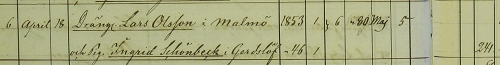 6 April 18. Dräng. Lars Olsson i Malmö 1853 1 & 6 30 Maj 5
och Pig. Ingrid Schönbeck i Gerdslöf -46 1 241